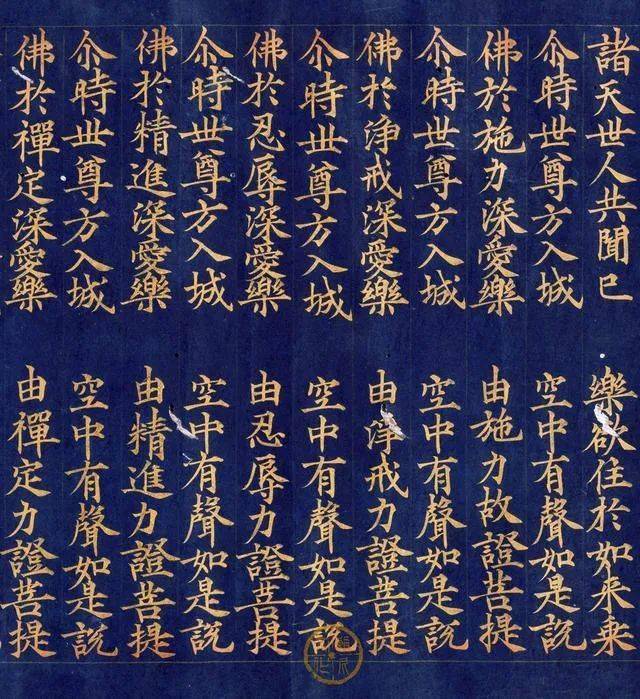 諸天世人共聞已　樂欲住於如来乗
尒時世尊方入城　空中有聲如是說
佛於施力深愛樂　由施力故證菩提
尒時世尊方入城　空中有聲如是說
佛於浄戒深愛樂　由浄戒力證菩提
尒時世尊方入城　空中有聲如是說
佛於忍辱深愛樂　由忍辱力證菩提
尒時世尊方入城　空中有聲如是說
佛於精進深愛樂　由精進力證菩提
尒時世尊方入城　空中有聲如是說
佛於禪定深愛樂　由禪定力證菩提